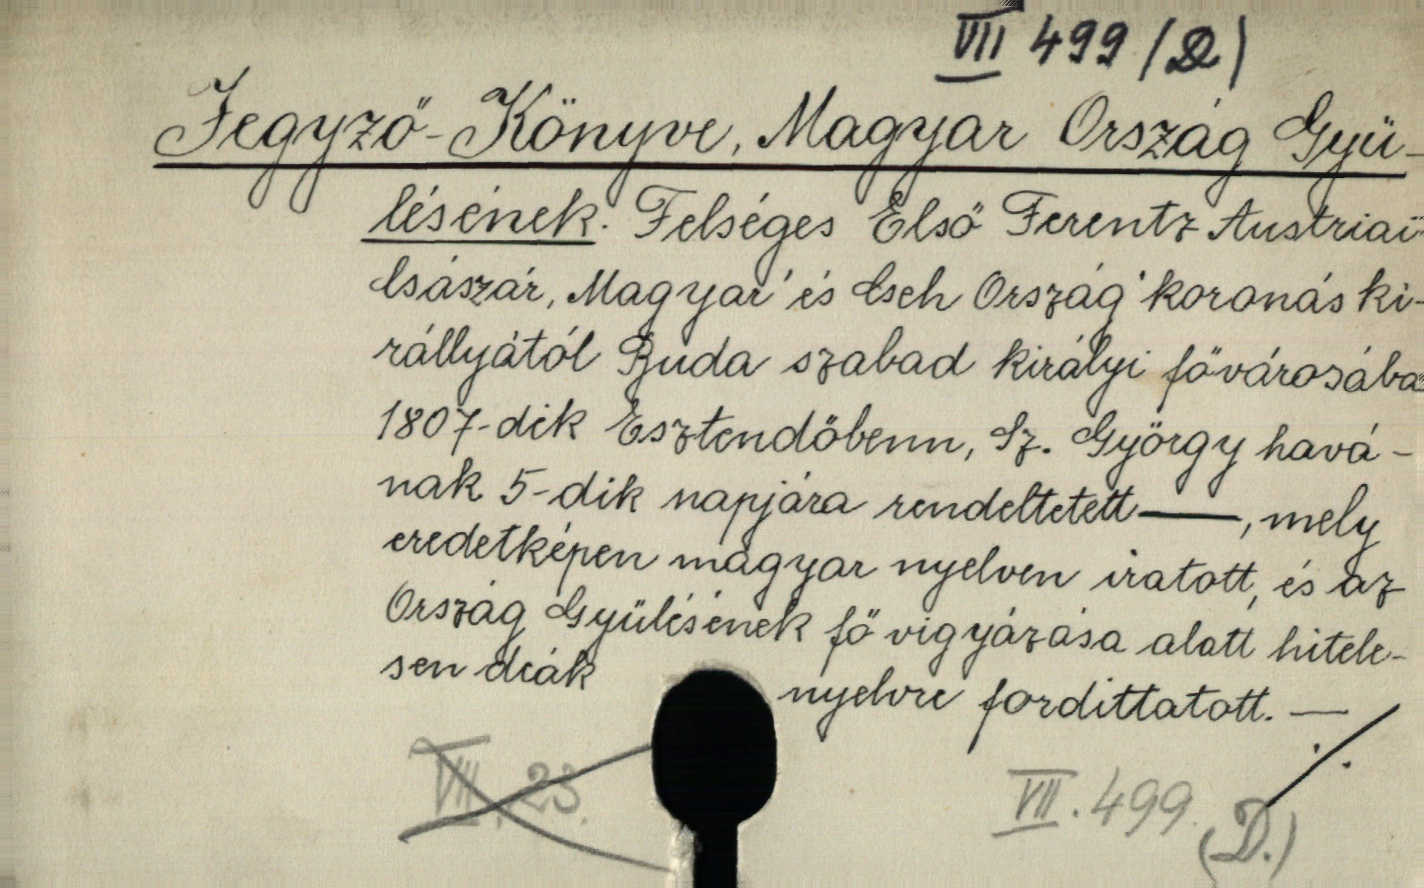 VII 499 (D)
Jegyző-Könyve, Magyar Ország Gyü-
lésének. Felséges Első Ferentz Austriai
Császár, Magyar' és Cseh Ország' koronás ki-
rállyától Buda szabad királyi fővárosába
1807-dik Esztendőbenn, Sz. György havá-
nak 5-dik napjára rendeltetett —, mely
eredetképen magyar nyelven iratott, és az
Ország Gyülésének fő vigyázása alatt hitele-
sen deák nyelvre fordittatott. —
VII. 23.
VII. 499. (D.)